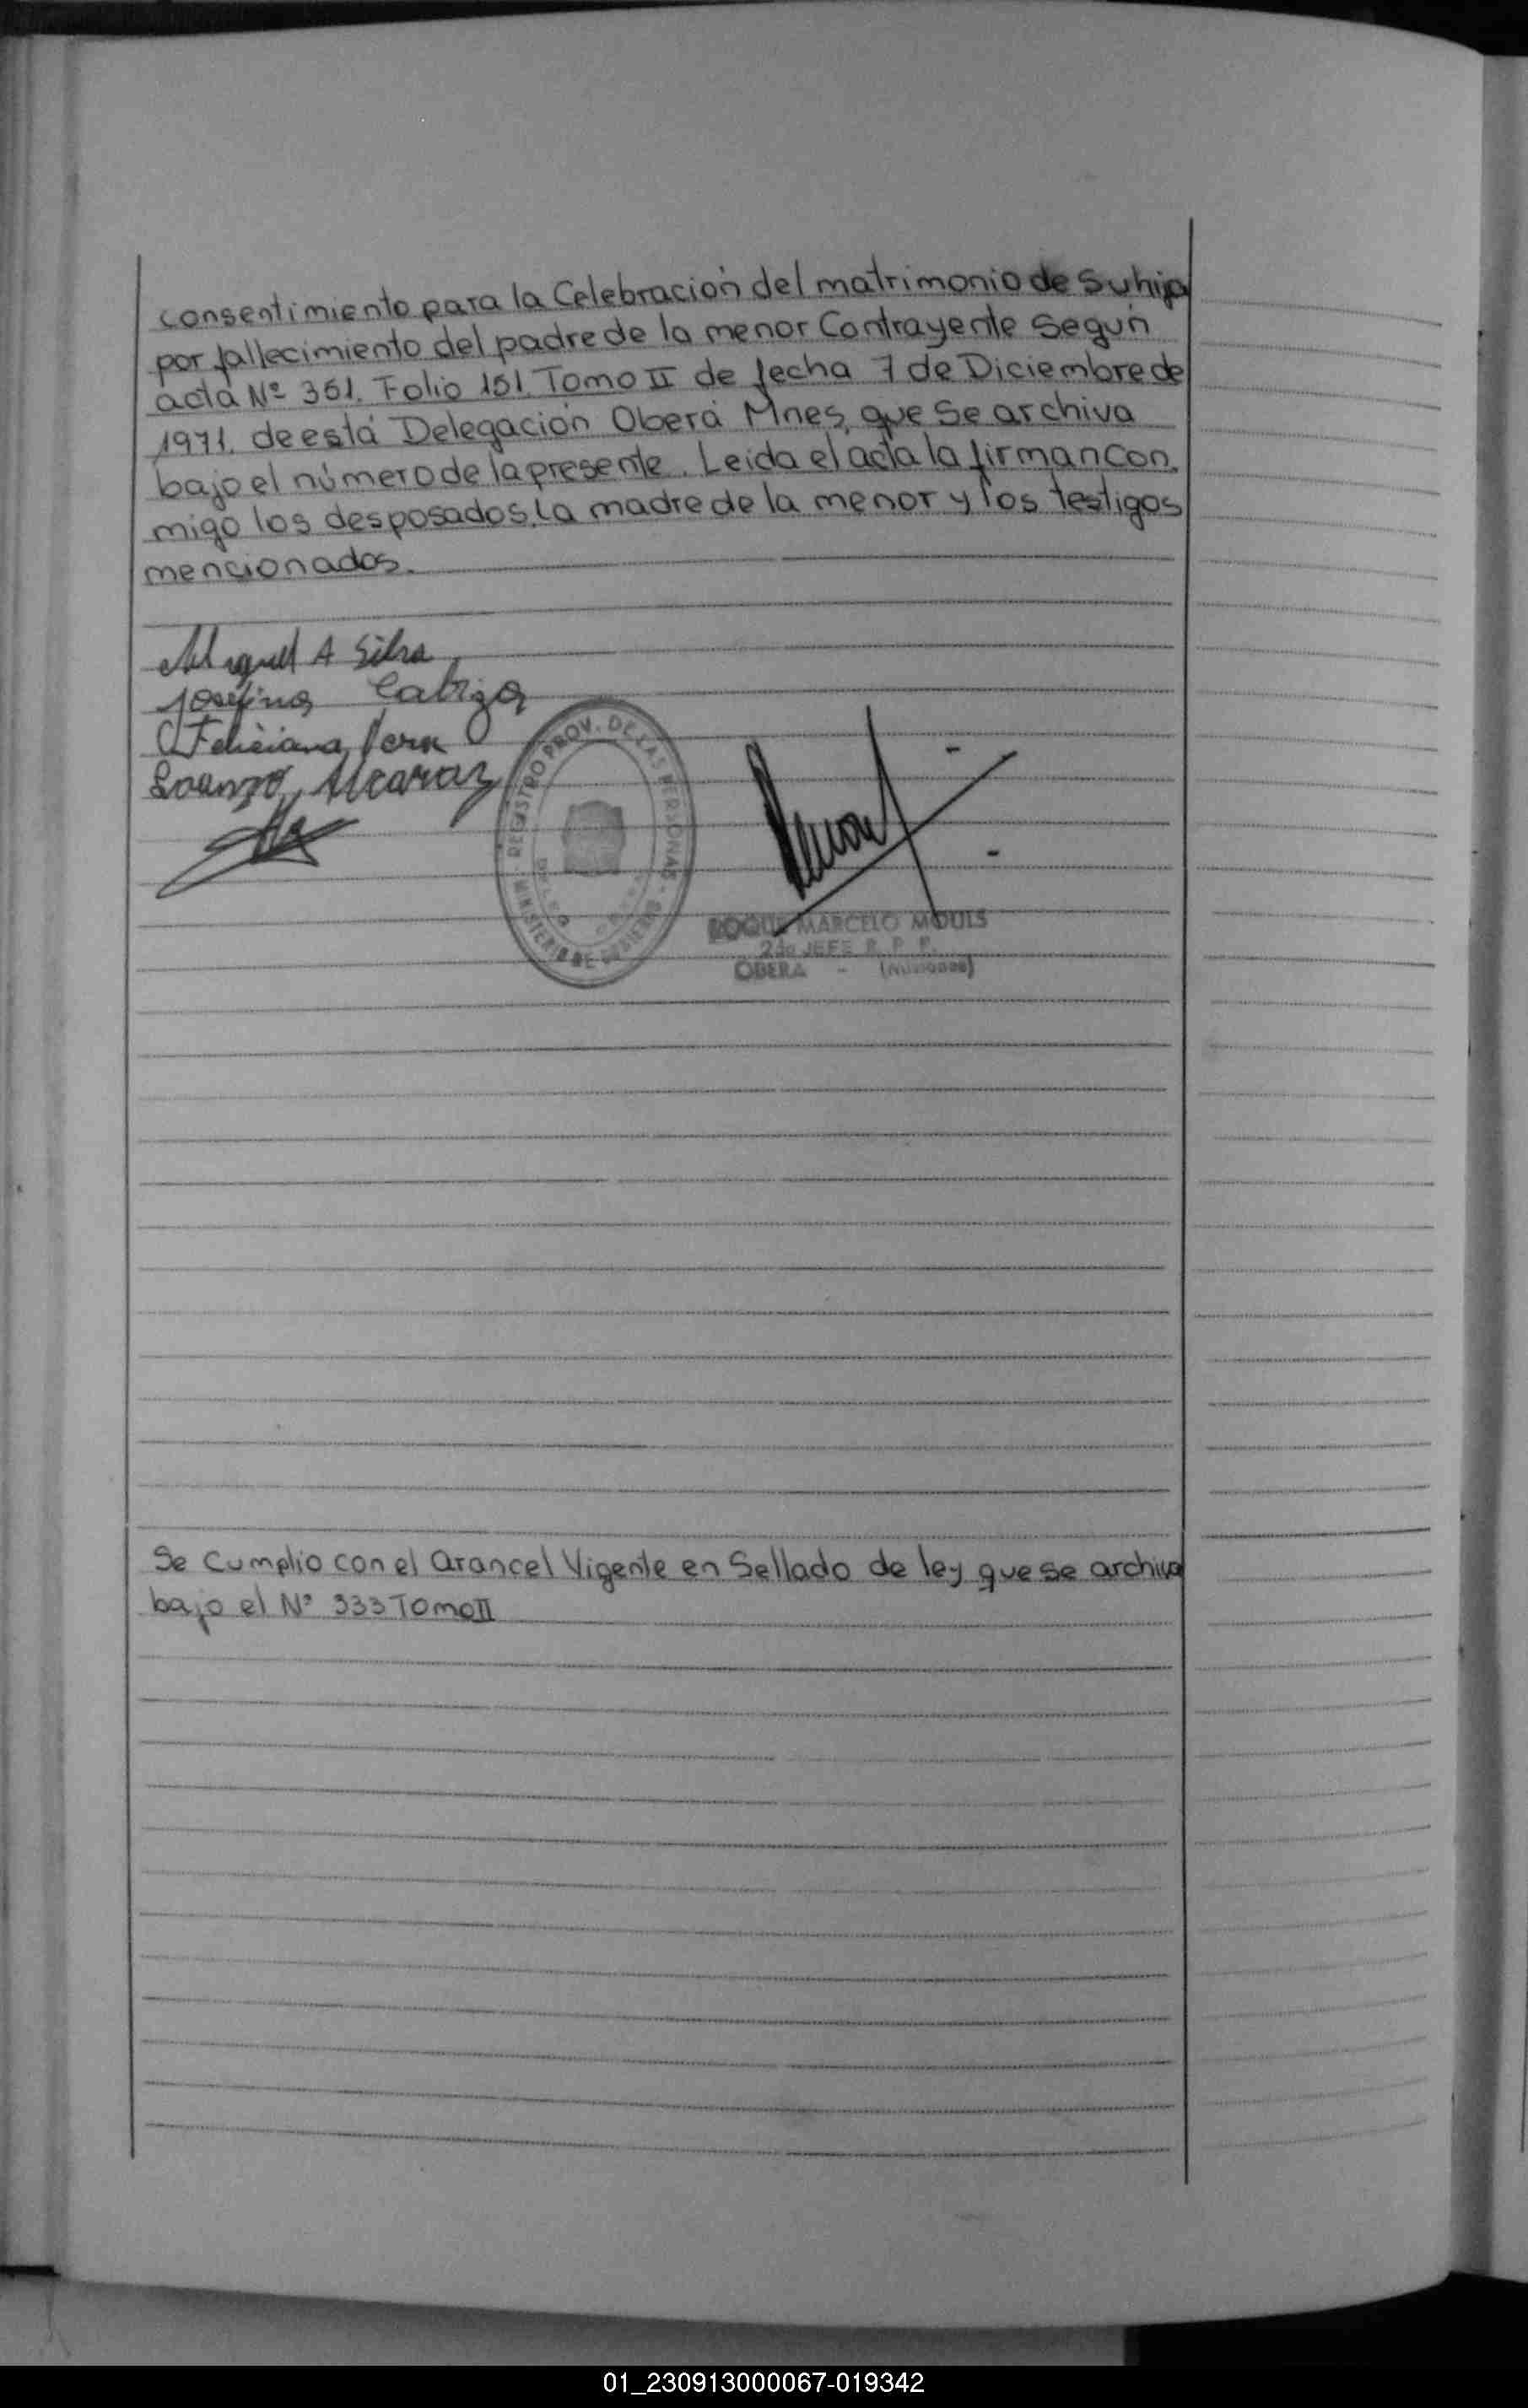 consentimiento para la Celebración del matrimonio de su hija
por fallecimiento del padre de la menor Contrayente Según
acta Nº 361. Folio 151. Tomo II de fecha 7 de Diciembre de
1971. de está Delegación Oberá Mnes, que Se archiva
bajo el número de la presente. Leida el acta la firman con.
migo los desposados, La madre de la menor y los testigos
mencionados.
Miguel A Silva
Josefina
Feliciana Vera
Lorenzo Alcaraz
REGISTRO PROV. DE LAS PERSONAS - MINISTERIO DE GOBIERNO
ROQUE MARCELO MOULS
2do JEFE R. P. P.
OBERA - (Misiones)
Se Cumplio con el Arancel Vigente en Sellado de ley que se archiva
bajo el Nº 333 Tomo II
01_230913000067-019342